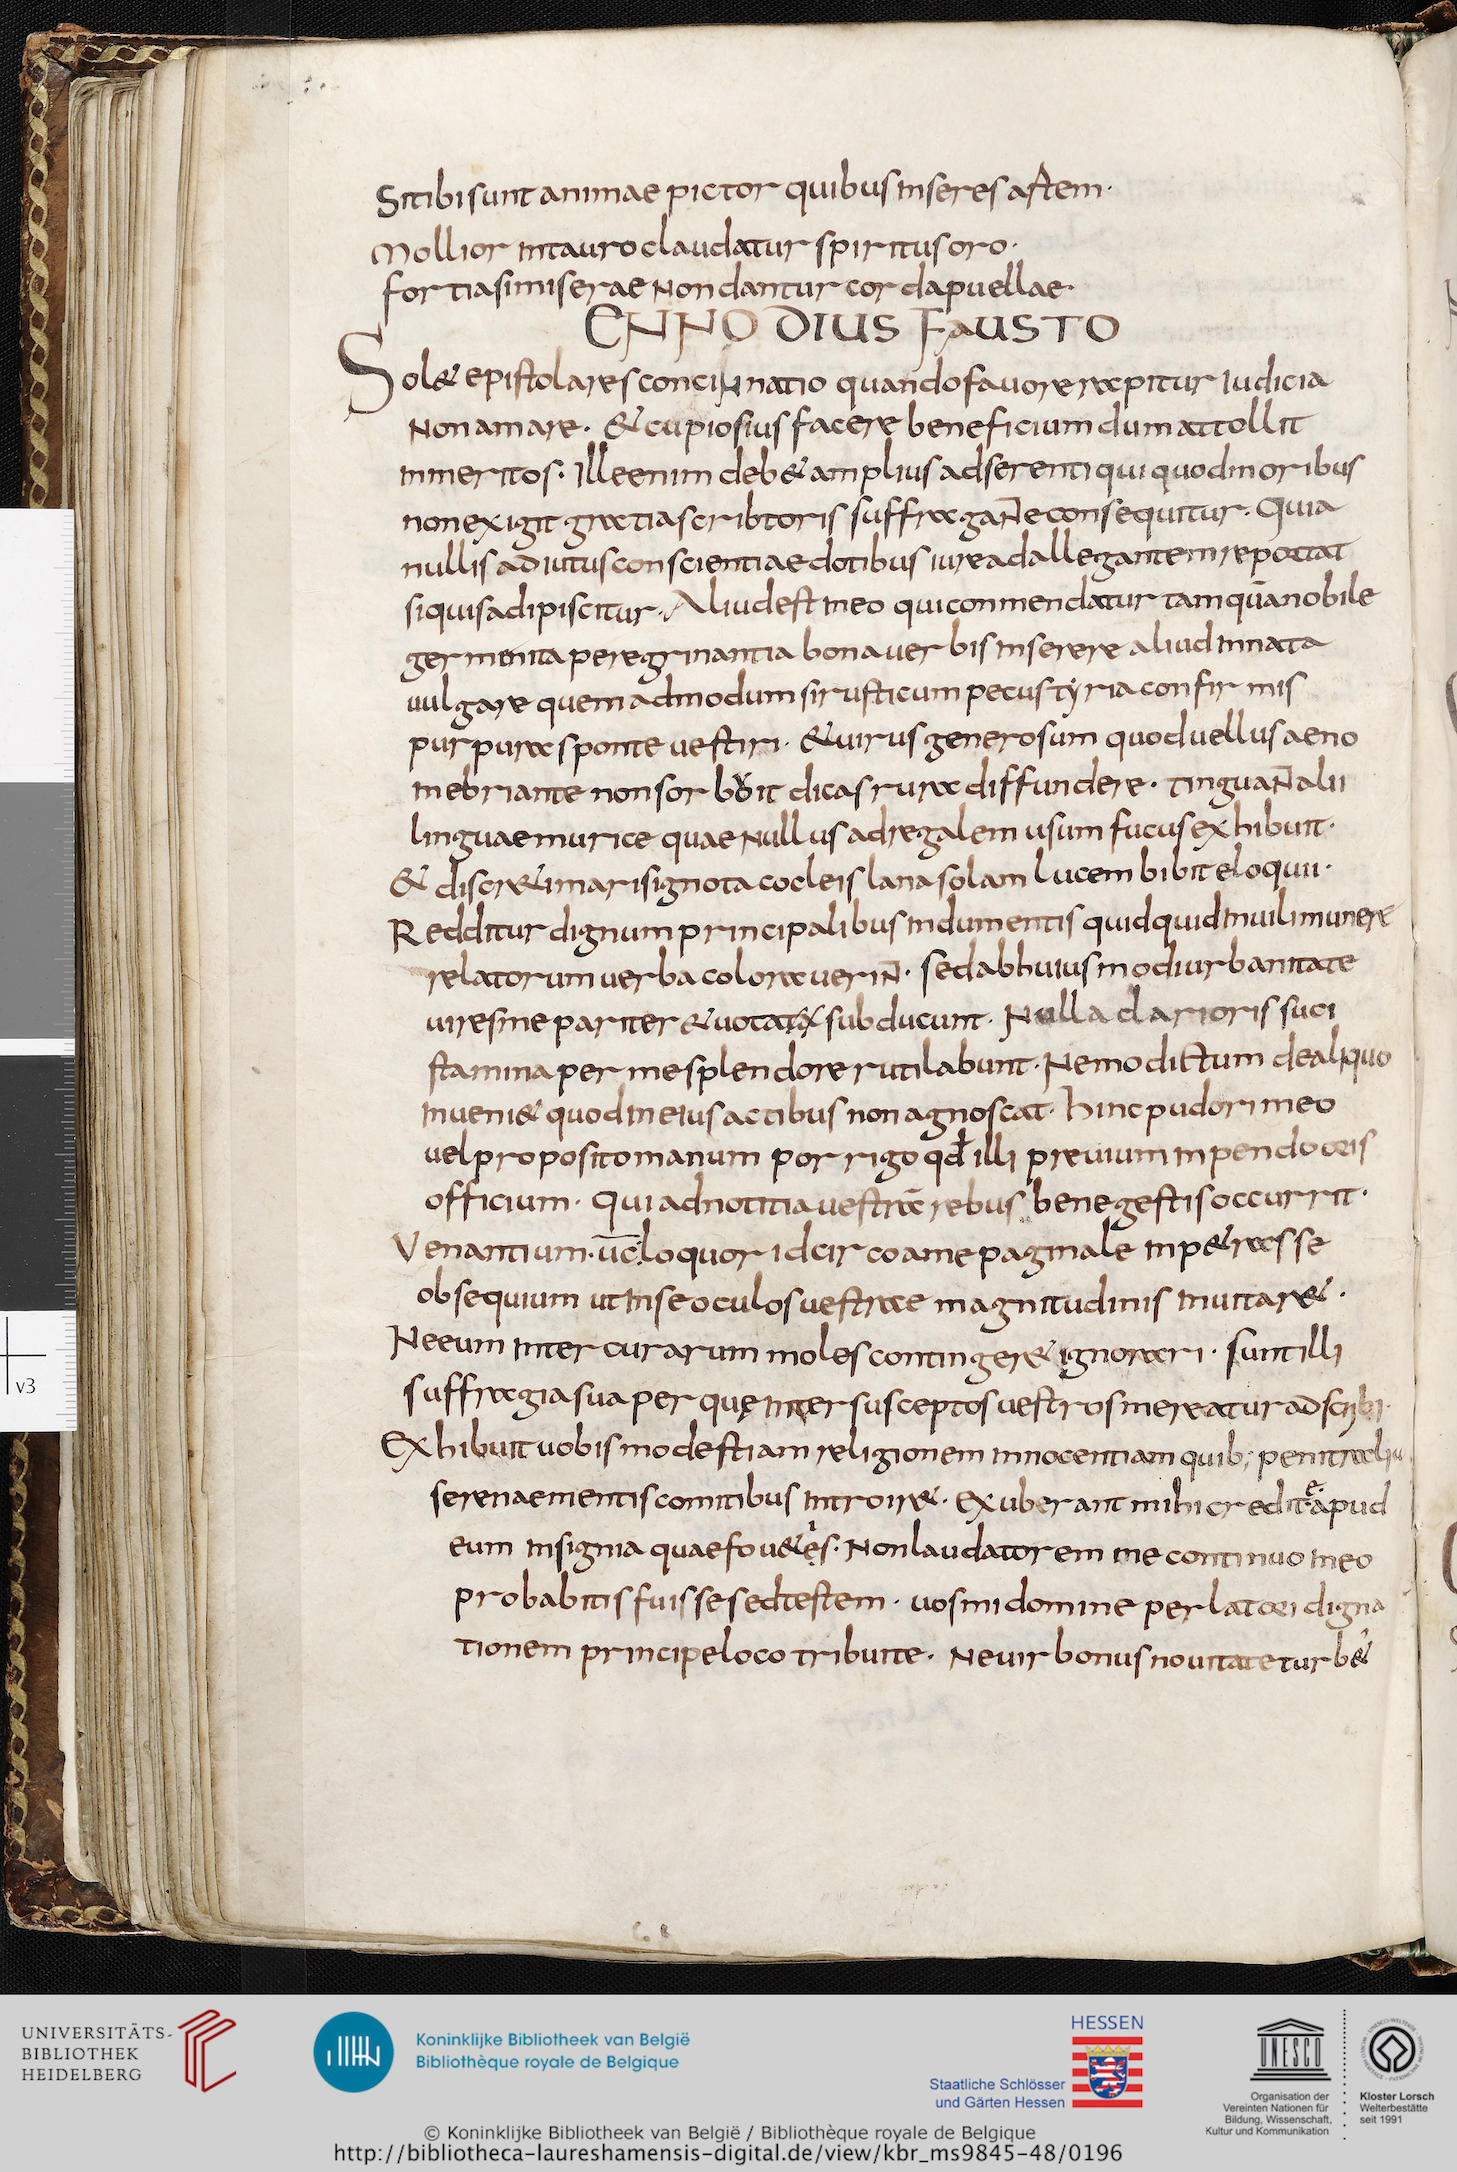 Sitibi sunt animae pictor quibus inseres astem·
Mollior intauro claudatur spiritus oro·
fortia simiserae non dantur corda puellae·
ENNODIUS FAUSTO
Sol& epistolares concinnatio quando fauore rapitur iudicia
non amare· & cupiosius facere beneficium dum attollit
inmeritos· Ille enim deb& amplius adserenti qui quod moribus
non exigit gratia scribtoris suffragan̄e consequitur· Quia
nullis adiutus conscientiae dotibus iure ad allegantem reportat
siquis adipiscitur· Aliud est meo qui conmendatur tamquā nobile
germen ita peregrinantia bona uerbis inserere aliud innata
uulgare quem admodum si rusticum pecus tyria confirmis
purpura sponte uestiri· & uirus generosum quod uellus aeno
inebriante non sorbuit dicas rura diffundere· tinguan̄ alii
linguae murice quae nullus ad regalem usum fucus exhibuit·
& discr& imaris ignota cocleis lana solam lucem bibit eloquii·
Redditur dignum principalibus indumentis quidquid inuili munere
relatorum uerba colorauerin̄· sed abhuiusmodi urbanitate
uires me pariter & uota subducunt· Nulla clarioris suci
stamina per me splendore rutilabunt· Nemo dictum de aliquo
inueni& quod in eius actibus non agnoscat· hinc pudori meo
uel proposito manum porrigo qđ illi preuium inpendo oris
officium· qui ad notitia uestrā rebus bene gestis occurrit·
Venantium· ūc̄· loquor idcirco a me paginale inp&rasse
obsequium ut in se oculos uestrae magnitudinis inuitar&·
Ne eum inter curarum moles continger& ignorari· sunt illi
suffragia sua per quę inter susceptos uestros mereatur adscribi·
Exhibuit uobis modestiam religionem innocentiam quib; penitralia
serenae mentis comitibus introir&· exuberant mihi credite apud
eum insignia quae fou&is· Non laudatorem me continuo meo
probabitis fuisse sed testem· uos mi domine perlatori digna
tionem principe loco tribuite· Ne uir bonus nouitate turb&
v3
UNIVERSITÄTS-
BIBLIOTHEK
HEIDELBERG
Koninklijke Bibliotheek van België
Bibliothèque royale de Belgique
HESSEN
Staatliche Schlösser
und Gärten Hessen
UNESCO
Organisation der
Vereinten Nationen für
Bildung, Wissenschaft,
Kultur und Kommunikation
Kloster Lorsch
Welterbestätte
seit 1991
© Koninklijke Bibliotheek van België / Bibliothèque royale de Belgique
http://bibliotheca-laureshamensis-digital.de/view/kbr_ms9845-48/0196